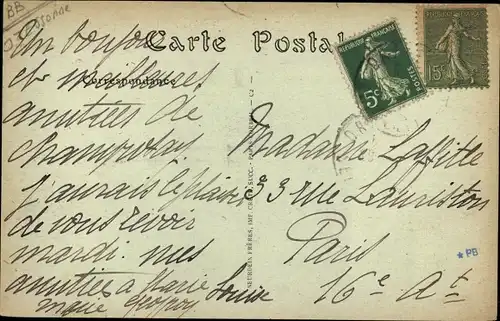 BB
Carte Postale
Correspondance
Un bonjour
et meilleures
amitiés de
Champrosay
j'aurais le plaisir
de vous revoir
mardi. mes
amitiés à Marie
Louise
RÉPUBLIQUE FRANÇAISE
5c
POSTES
15c
Madame Laffitte
33 rue Lauriston
Paris
16e At
NEURDEIN FRÈRES, IMP.
*PB